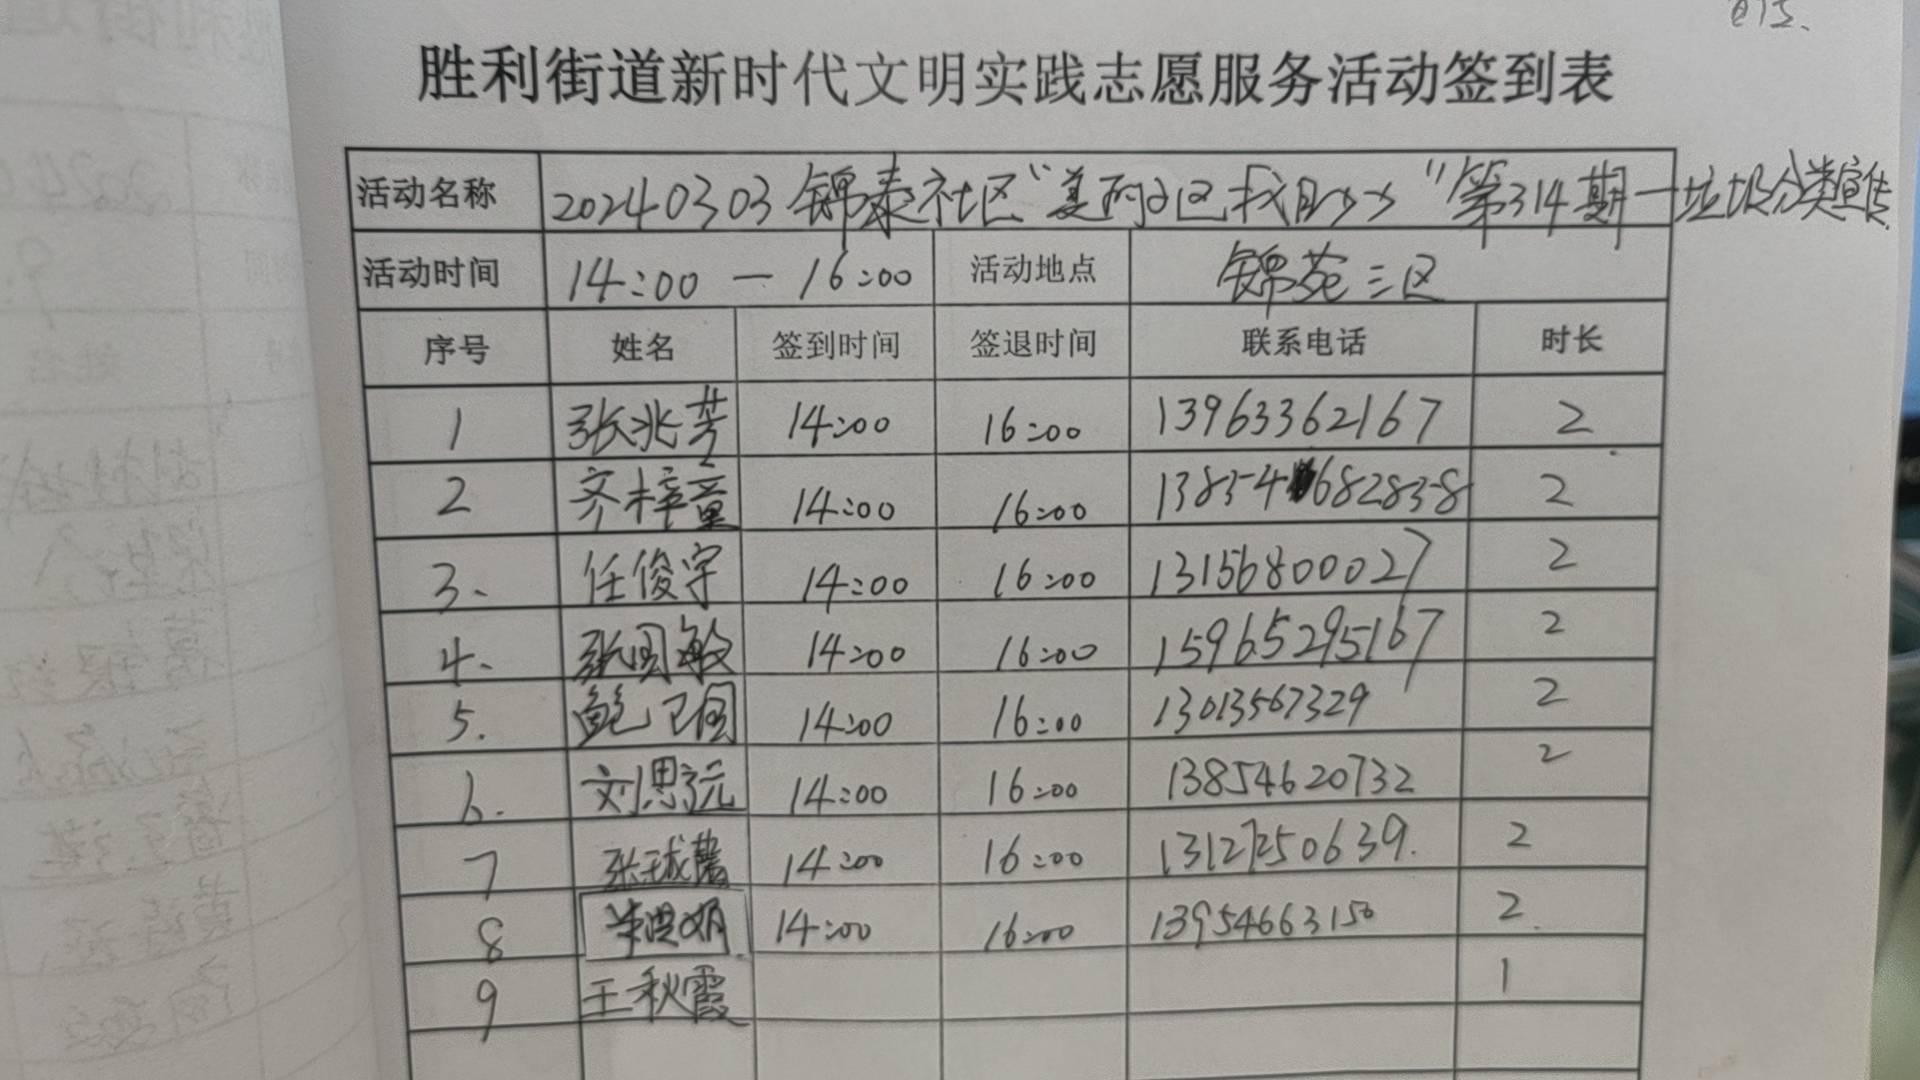 胜利街道新时代文明实践志愿服务活动签到表
活动名称 20240303锦泰社区“美丽社区我助力”第314期—垃圾分类宣传
活动时间 14:00 — 16:00 活动地点 锦苑三区
序号 姓名 签到时间 签退时间 联系电话 时长
1 张兆芳 14:00 16:00 13963362167 2
2 齐梓童 14:00 16:00 13854682838 2
3、 任俊宇 14:00 16:00 13156800027 2
4、 张国敏 14:00 16:00 15965295167 2
5. 鲍卫国 14:00 16:00 13013567329 2
6. 刘思远 14:00 16:00 13854620732 2
7 张馨 14:00 16:00 13127250639. 2
8 14:00 16:00 13954663150 2
9 王秋霞 1